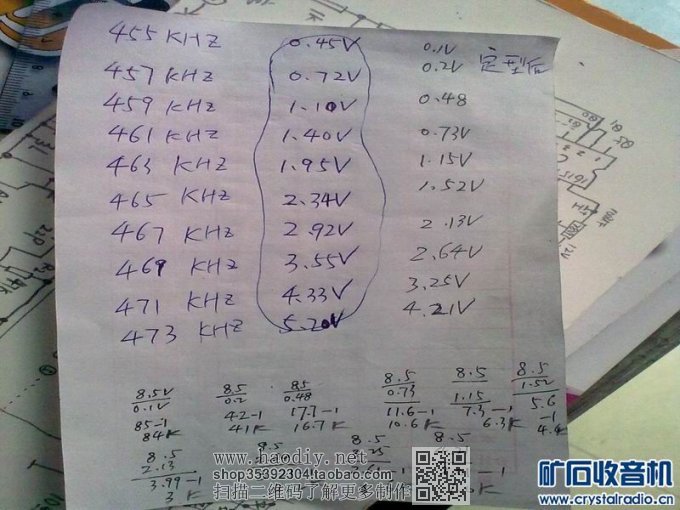 455 KHz 0.45V 0.1V
0.2V 定型后
457 KHz 0.72V
459 KHz 1.10V 0.48
461 KHz 1.40V 0.73V
463 KHz 1.95V 1.15V
465 KHz 2.34V 1.52V
467 KHz 2.92V 2.13V
469 KHz 3.55V 2.64V
471 KHz 4.33V 3.25V
473 KHz 5.20V 4.21V
8.5V 8.5 8.5 8.5 8.5 8.5
0.1V 0.2 0.48 0.73 1.15 1.52
85-1 42-1 17.7-1 11.6-1 7.3-1 5.6
-1
84K 41K 16.7K 10.6K 6.3K 4.6
8.5 8.5 8.5 8.5
2.13
3.99-1
3 K
www.haodiy.net
shop35392304.taobao.com
扫描二维码了解更多制作
矿石收音机
www.crystalradio.cn